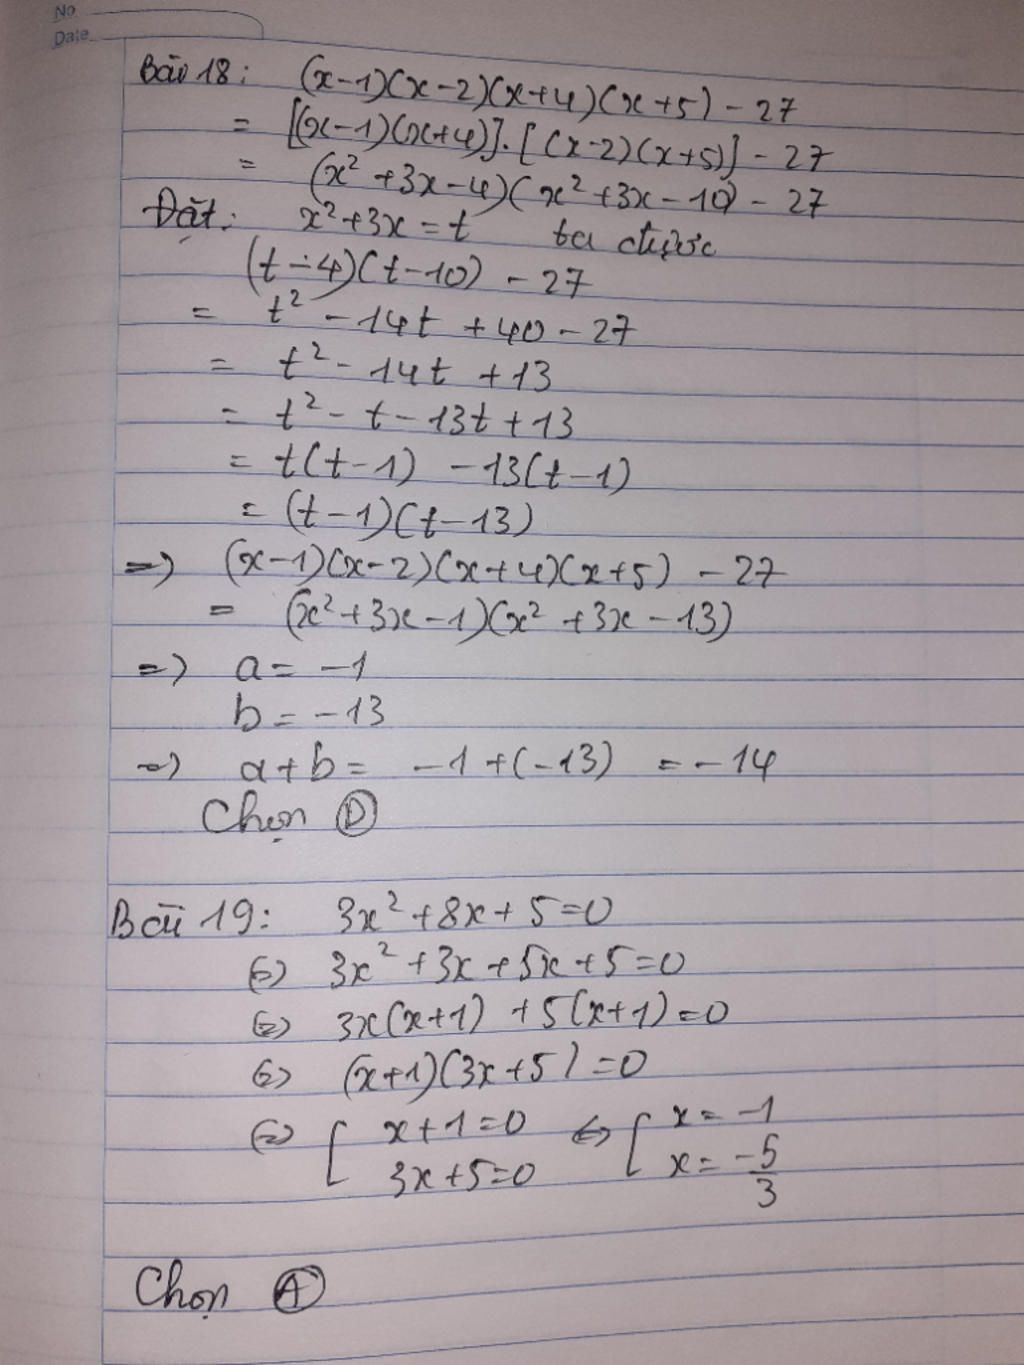 No
Date
Bài 18: (x-1)(x-2)(x+4)(x+5) - 27
= [(x-1)(x+4)].[(x-2)(x+5)] - 27
= (x² +3x-4)(x²+3x-10) - 27
Đặt: x²+3x = t ta được
(t-4)(t-10) - 27
= t² - 14t + 40 - 27
= t² - 14t + 13
= t² - t - 13t + 13
= t(t-1) - 13(t-1)
= (t-1)(t-13)
=> (x-1)(x-2)(x+4)(x+5) - 27
= (x²+3x-1)(x² +3x-13)
=> a = -1
b = -13
=> a+b = -1+(-13) = -14
Chọn D
Bài 19: 3x²+8x+5=0
<=> 3x² +3x+5x+5=0
<=> 3x(x+1) +5(x+1)=0
<=> (x+1)(3x+5)=0
<=> [ x+1=0 <=> [ x = -1
3x+5=0 x = -5/3
Chọn A